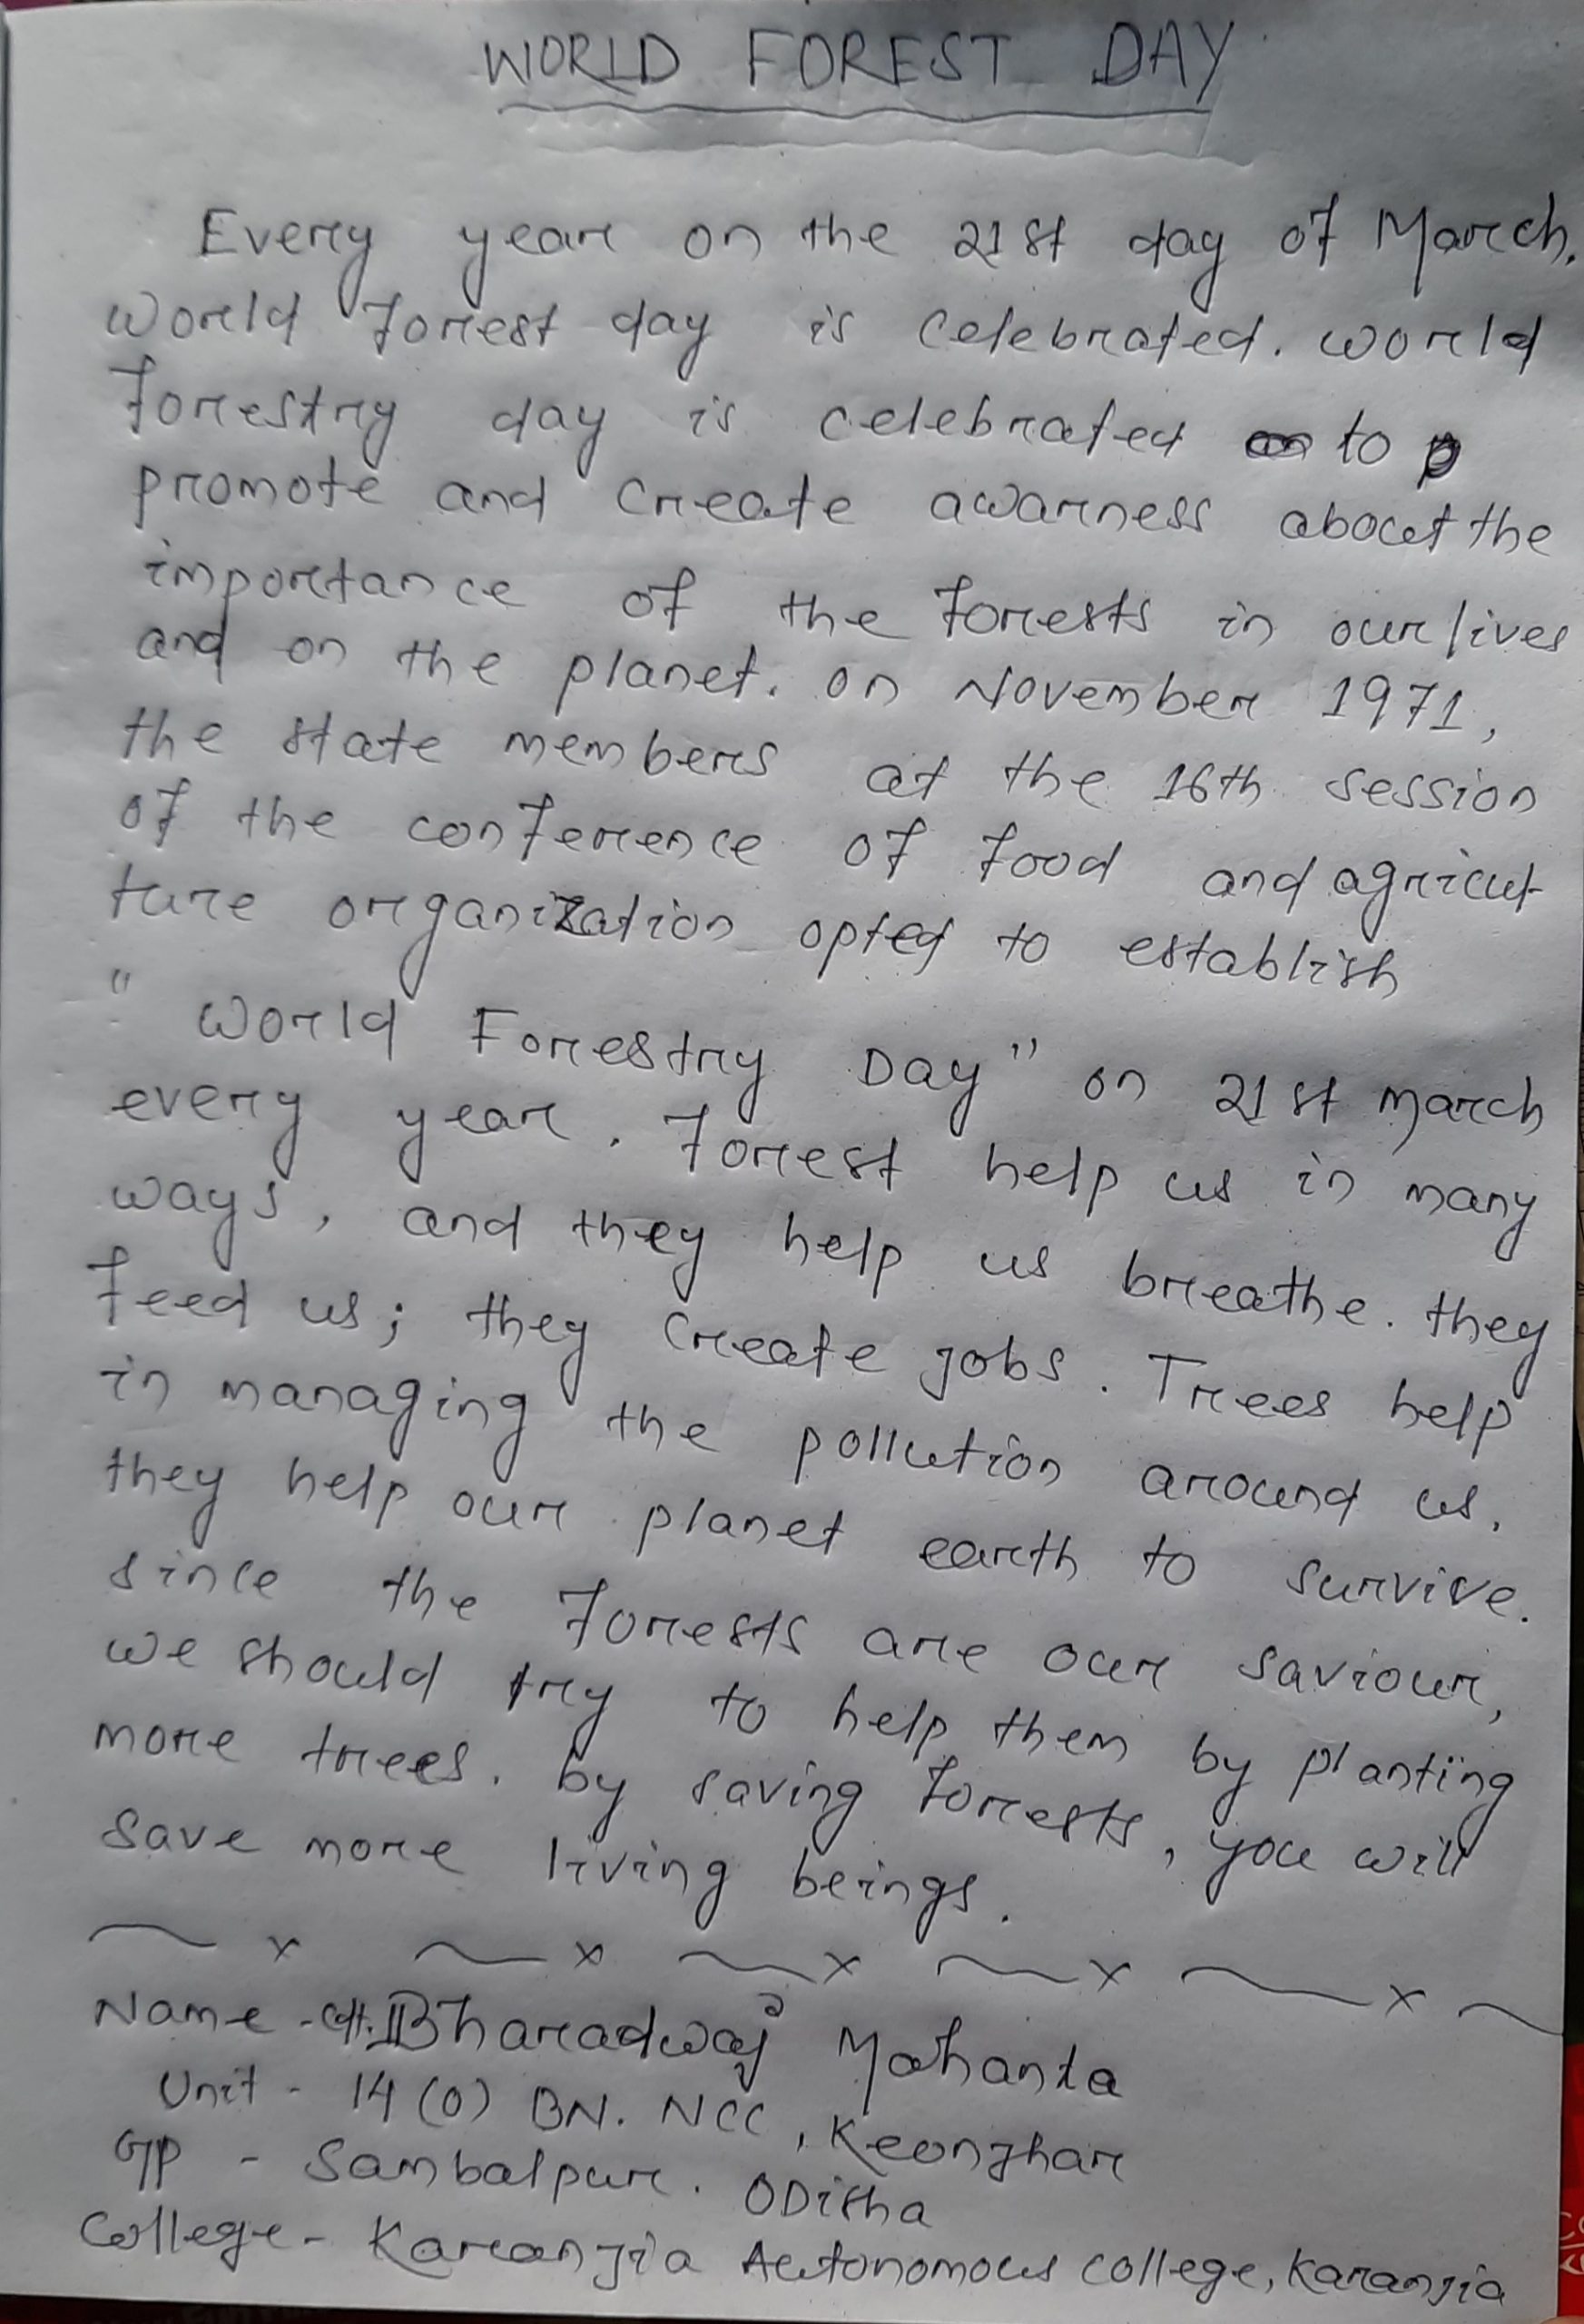 WORLD FOREST DAY
Every year on the 21st day of March.
world forest day is celebrated. world
forestry day is celebrated to
promote and create awarness about the
importance of the forests in our lives
and on the planet. on November 1971,
the state members at the 16th session
of the conference of food and agricul
ture organization opted to establish
" World Forestry Day" on 21st march
every year. Forest help us in many
ways, and they help us breathe. they
feed us; they create jobs. Trees help
in managing the pollution around us,
they help our planet earth to survive.
since the forests are our saviour,
we should try to help them by planting
more trees. by saving forests, you will
save more living beings.
Name - Bharadwaj Mahanta
Unit - 14 (0) BN. NCC, Keonjhar
GP - Sambalpur. ODisha
College - Karanjia Autonomous college, Karanjia